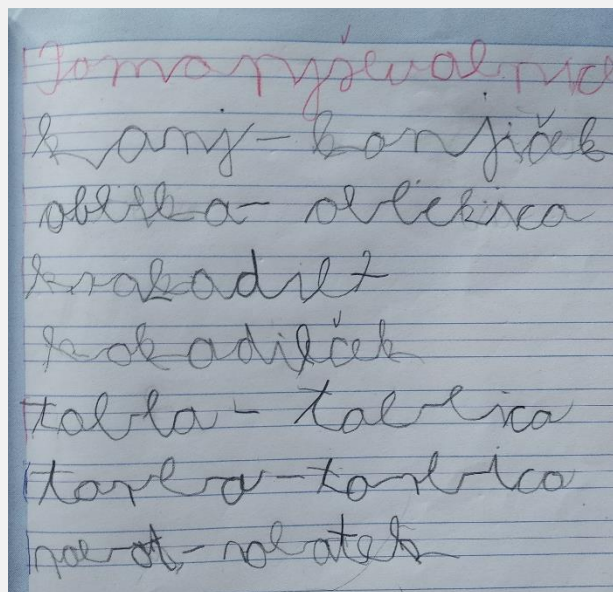 Pomanjševalnice
kanj - konjiček
obleka - oblekica
krokodil
kokodilček
tabla - tablica
torba - torbica